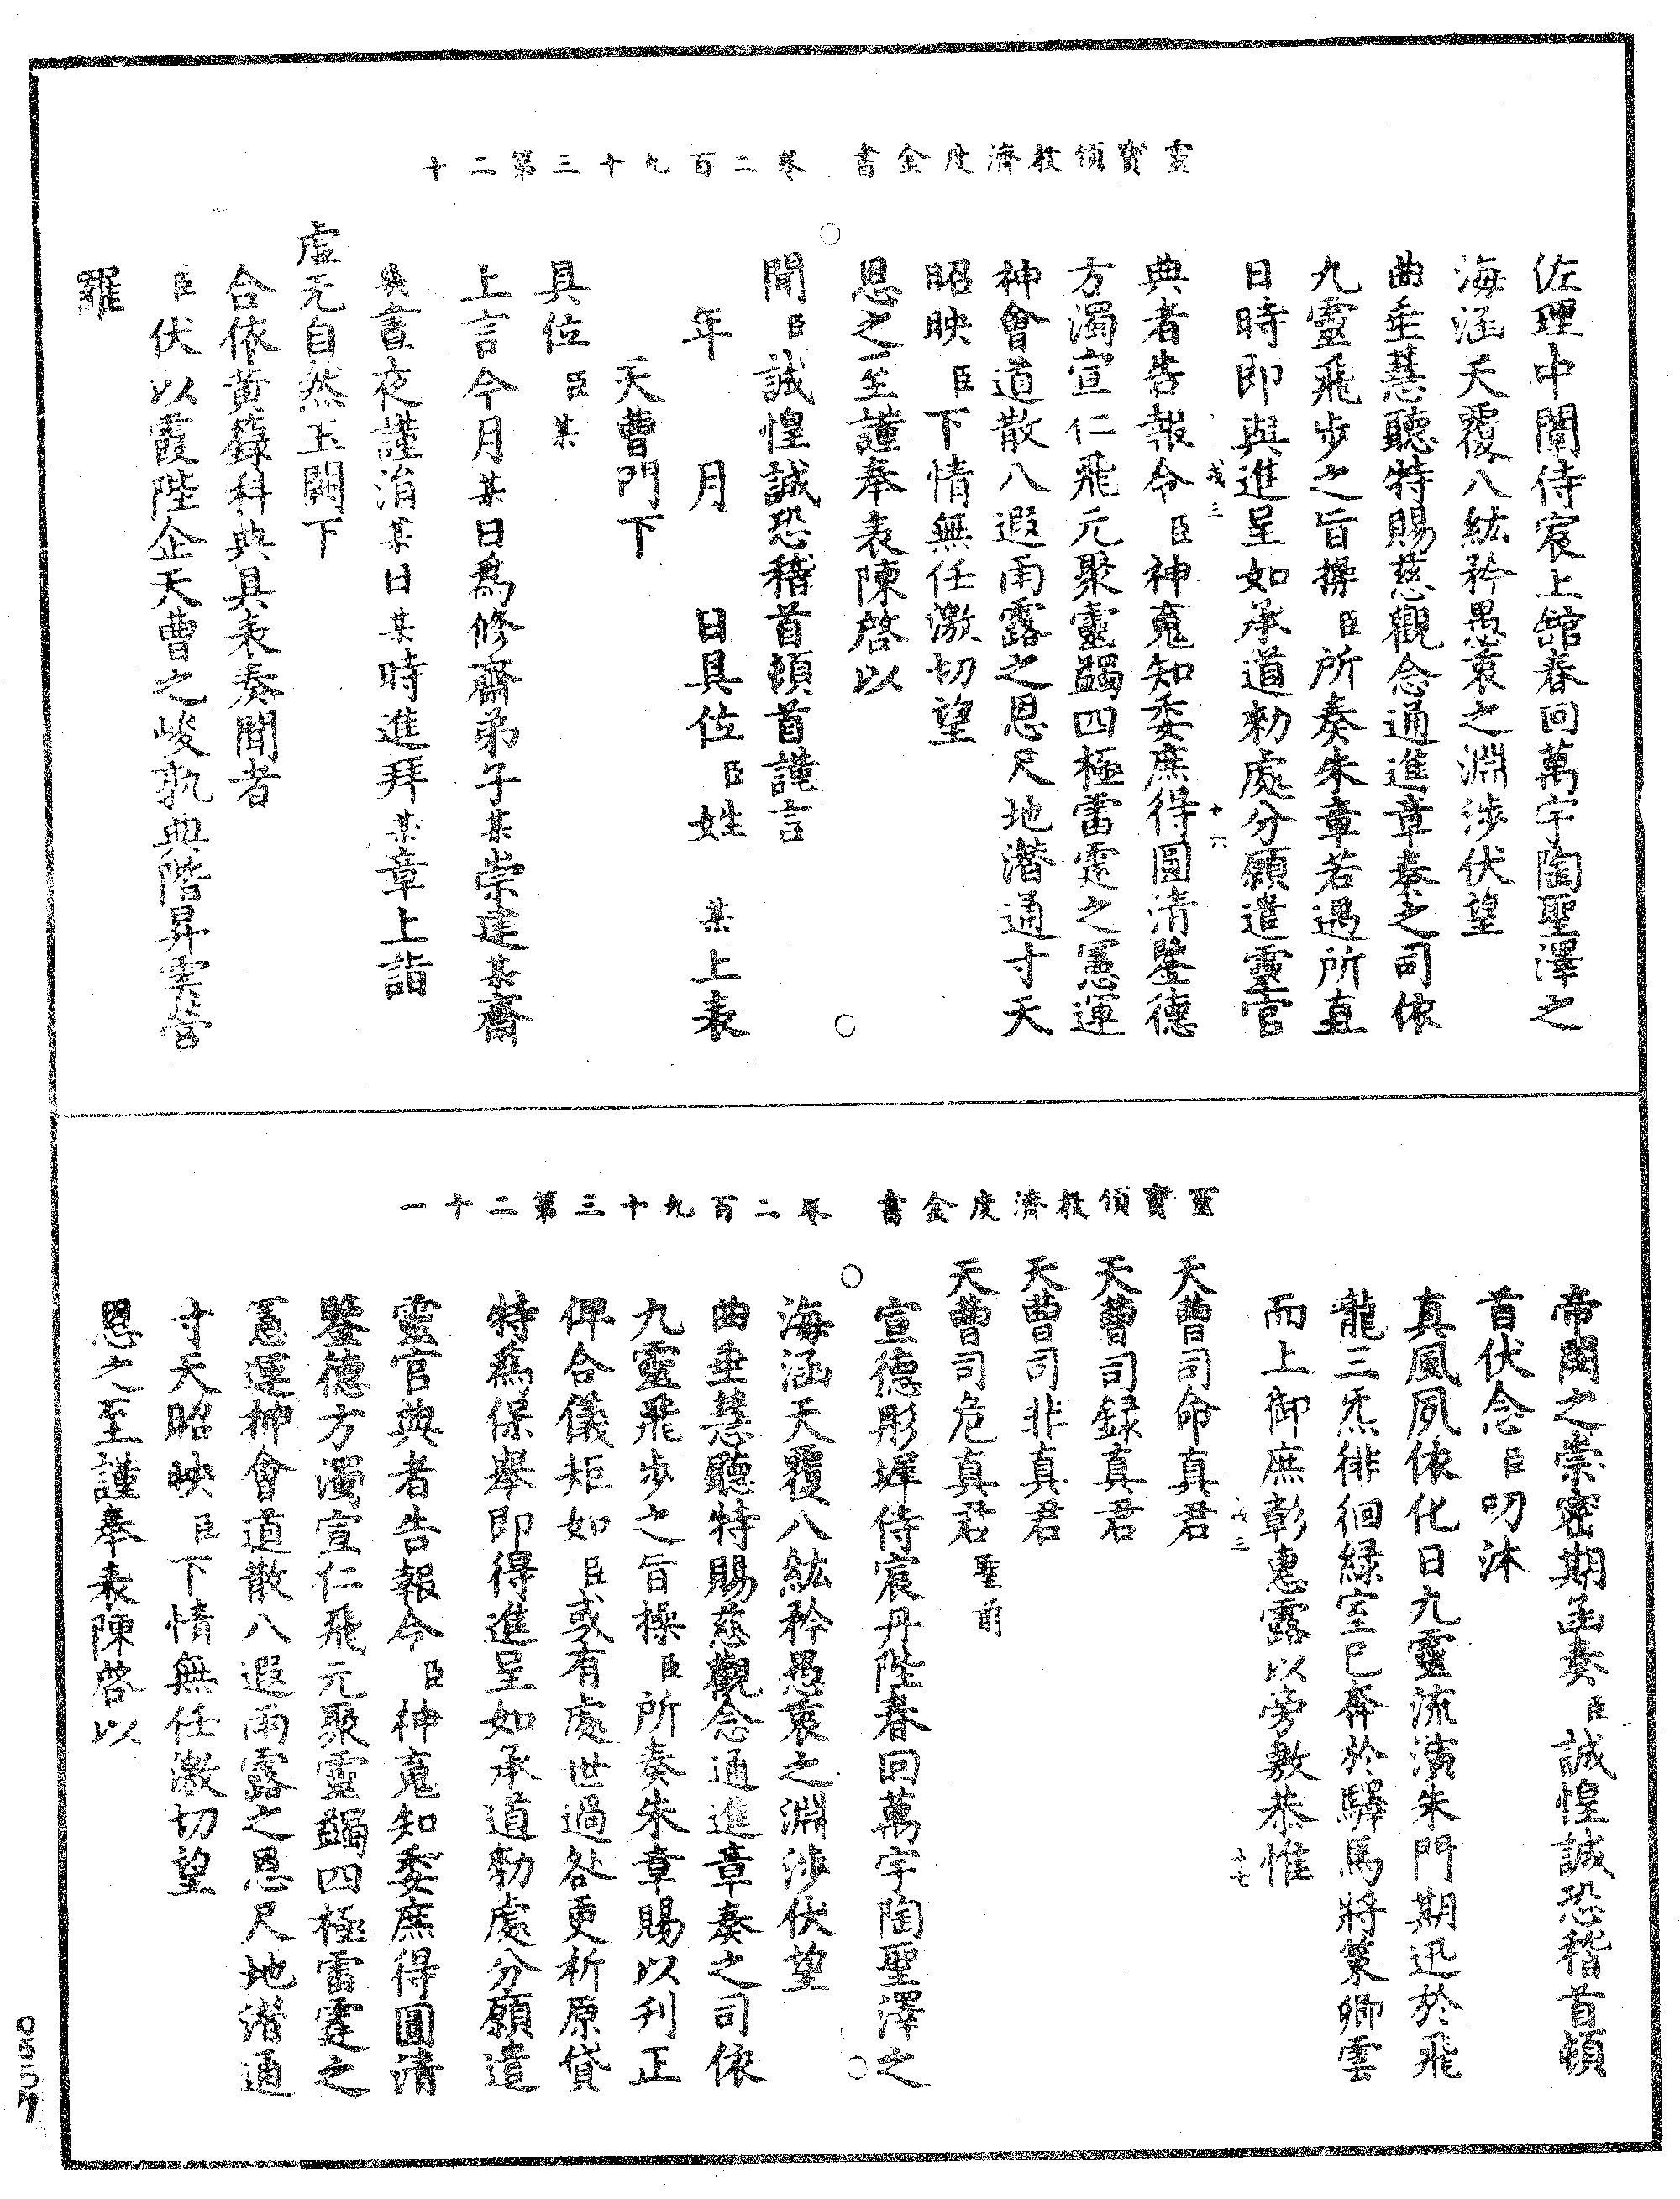 靈寶領教濟度金書　卷二百九十三第二十
佐理中闈侍宸上舘春回萬宇陶聖澤之
海涵天覆八紘矜愚衷之淵涉伏望
曲垂慧聽特賜慈觀念通進章奏之司依
九靈飛步之旨操臣所奏朱章若遇所直
日時即與進呈如承道勑處分願遣靈官
戎三　十六
典者告報令臣神䰟知委庶得圓清鑒德
方濁宣仁飛元聚靈蠲四極雷霆之憲運
神會道散八遐雨露之恩尺地潛通寸天
昭映臣下情無任激切望
恩之至謹奉表陳啓以
聞臣誠惶誠恐稽首頓首謹言
年　月　日具位臣姓　某上表
天曹門下
具位臣某
上言今月某日爲修齋弟子某崇建某齋
幾晝夜謹涓某日某時進拜某章上詣
虛无自然玉闕下
合依黃籙科典具表奏聞者
臣伏以霞陛企天曹之峻孰典階昇雲笈
羅
靈寶領教濟度金書　卷二百九十三第二十一
帝閽之崇密期函奏臣誠惶誠恐稽首頓
首伏念臣叨沐
真風夙依化日九靈流演朱門期迅於飛
龍三炁徘徊緑室已奔於驛馬將策卿雲
而上御庶彰惠露以旁敷恭惟
戎三　十七
天曹司命真君
天曹司録真君
天曹司非真君
天曹司危真君聖前
宣德彤墀侍宸丹陛春回萬宇陶聖澤之
海涵天覆八紘矜愚衷之淵涉伏望
曲垂慧聽特賜慈觀念通進章奏之司依
九靈飛步之旨操臣所奏朱章賜以刋正
俾合儀矩如臣或有處世過咎更祈原貸
特爲保舉即得進呈如承道勑處分願遣
靈官典者告報令臣神䰟知委庶得圓清
鑒德方濁宣仁飛元聚靈蠲四極雷霆之
憲運神會道散八遐雨露之恩尺地潛通
寸天昭映臣下情無任激切望
恩之至謹奉表陳啓以